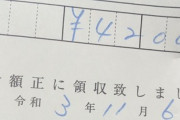 ¥420
額正に領収致しまし
令和 3 年 11 月 6